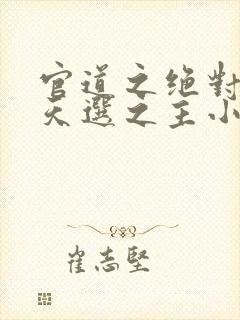 官道之绝對
天選之主小
崔志堅